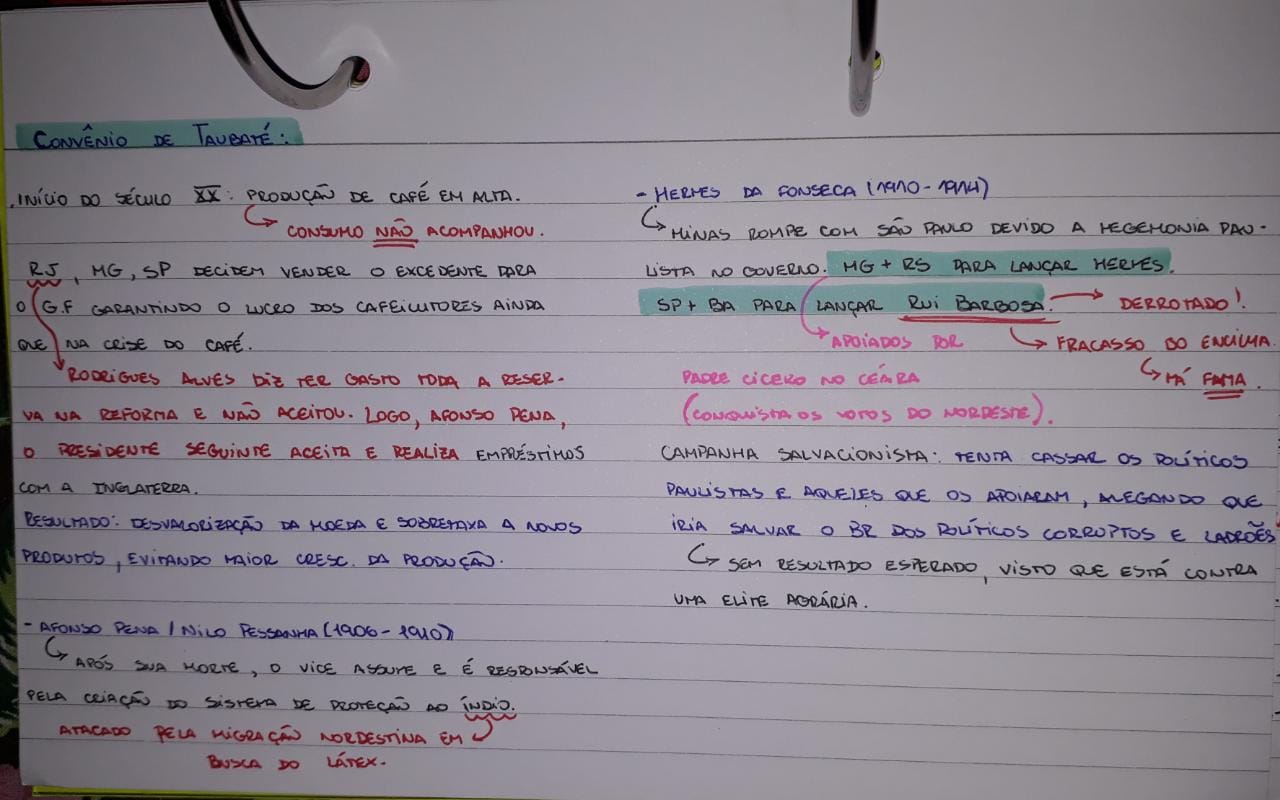 CONVÊNIO DE TAUBATÉ:
.INÍCIO DO SÉCULO XX: PRODUÇÃO DE CAFÉ EM ALTA.
CONSUMO NÃO ACOMPANHOU.
RJ, MG, SP DECIDEM VENDER O EXCEDENTE PARA
O G.F GARANTINDO O LUCRO DOS CAFEICUTORES AINDA
QUE NA CRISE DO CAFÉ.
RODRIGUES ALVES DIZ TER GASTO TODA A RESER-
VA NA REFORMA E NÃO ACEITOU. LOGO, AFONSO PENA,
O PRESIDENTE SEGUINTE ACEITA E REALIZA EMPRÉSTIMOS
COM A INGLATERRA.
RESULTADO: DESVALORIZAÇÃO DA MOEDA E SOBRETAXA A NOVOS
PRODUTOS, EVITANDO MAIOR CRESC. DA PRODUÇÃO.
- AFONSO PENA / NILO PESSANHA (1906 - 1910)
APÓS SUA MORTE, O VICE ASSUME E É RESPONSÁVEL
PELA CRIAÇÃO DO SISTEMA DE PROTEÇÃO AO ÍNDIO.
ATACADO PELA MIGRAÇÃO NORDESTINA EM
BUSCA DO LÁTEX.
- HERMES DA FONSECA (1910 - 1914)
MINAS ROMPE COM SÃO PAULO DEVIDO A HEGEMONIA PAU-
LISTA NO GOVERNO. MG + RS PARA LANÇAR HERMES.
SP + BA PARA LANÇAR RUI BARBOSA. DERROTADO!
APOIADOS POR FRACASSO DO ENCILHA.
PADRE CICERO NO CEÁRA MÁ FAMA.
(CONQUISTA OS VOTOS DO NORDESTE).
CAMPANHA SALVACIONISTA: TENTA CASSAR OS POLÍTICOS
PAULISTAS E AQUELES QUE OS APOIARAM, ALEGANDO QUE
IRIA SALVAR O BR DOS POLÍTICOS CORRUPTOS E LADRÕES
SEM RESULTADO ESPERADO, VISTO QUE ESTÁ CONTRA
UMA ELITE AGRÁRIA.